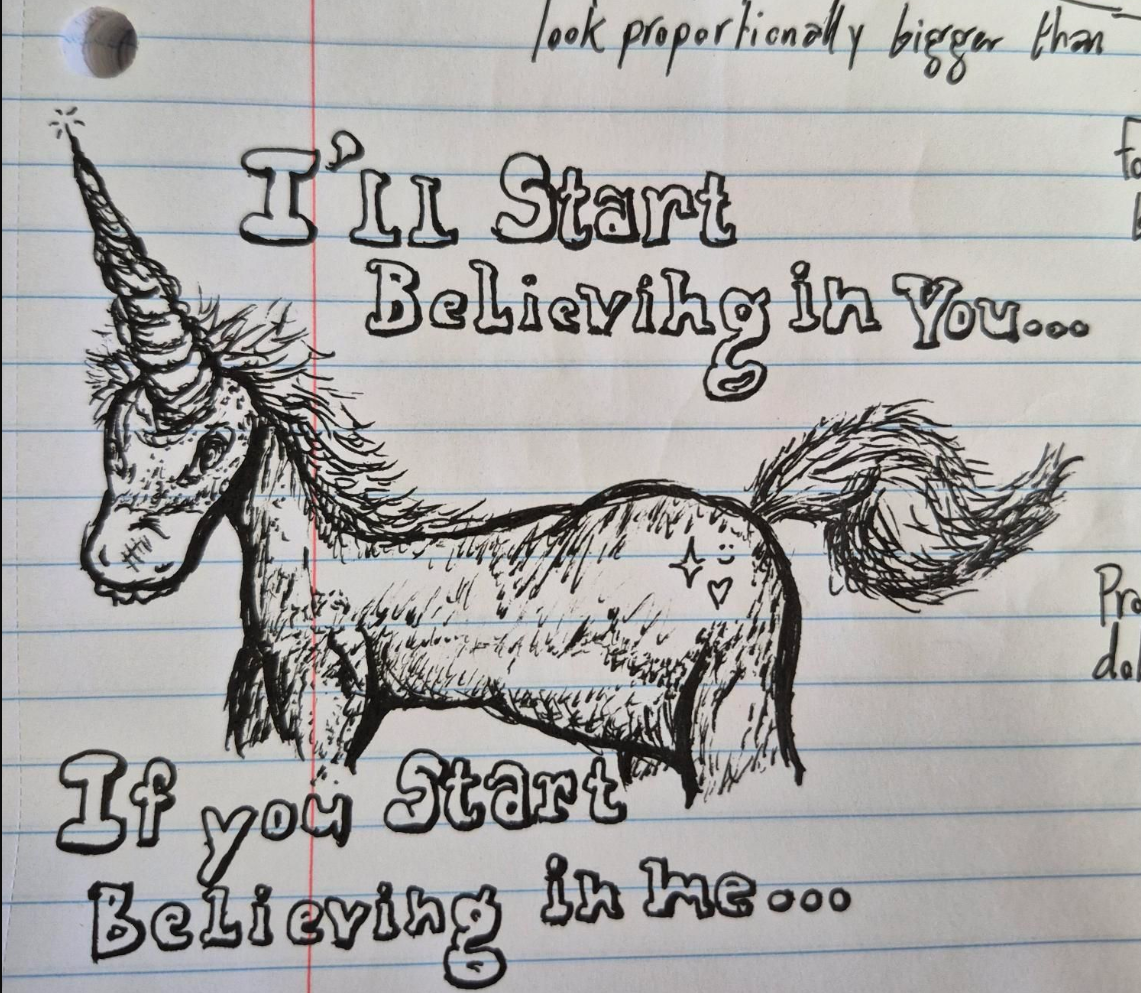 look proportionally bigger than
I'll Start
Believing in You...
If you Start
Believing in me...